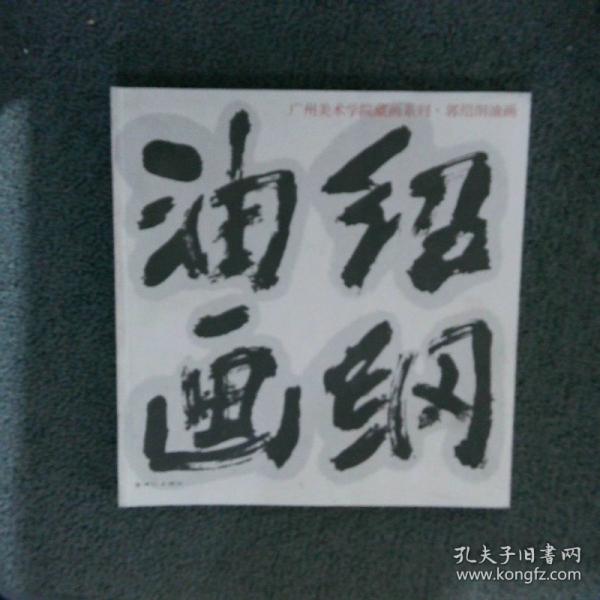 广州美术学院藏画系列·郭绍纲油画
绍纲
油画
孔夫子旧書网
www.kongfz.com